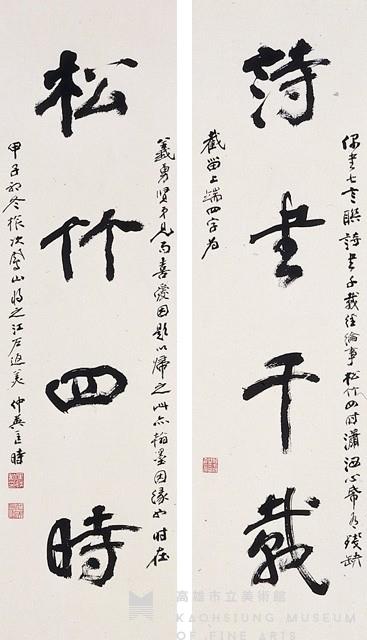 詩書千載
偶書七言聯詩書千載經綸事松竹四時瀟洒心常有殘缺
截留上端四字為
松竹四時
義勇賢弟見而喜愛因題以歸之此亦翰墨因緣也時在
甲子初冬振次鳳山將之江左返美 仲英 時
高雄市立美術館
KAOHSIUNG MUSEUM
OF FINE ARTS